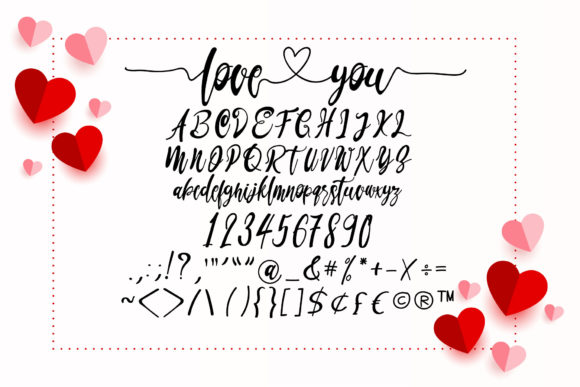 love you
ABCDEFGHIJKL
MNOPQRSTUVWXYZ
abcdefghijklmnopqrstuvwxyz
1234567890
.,:;!?,'"'"“@_&#%*+-X÷=
~<>/\(){}[]$¢£€©®™